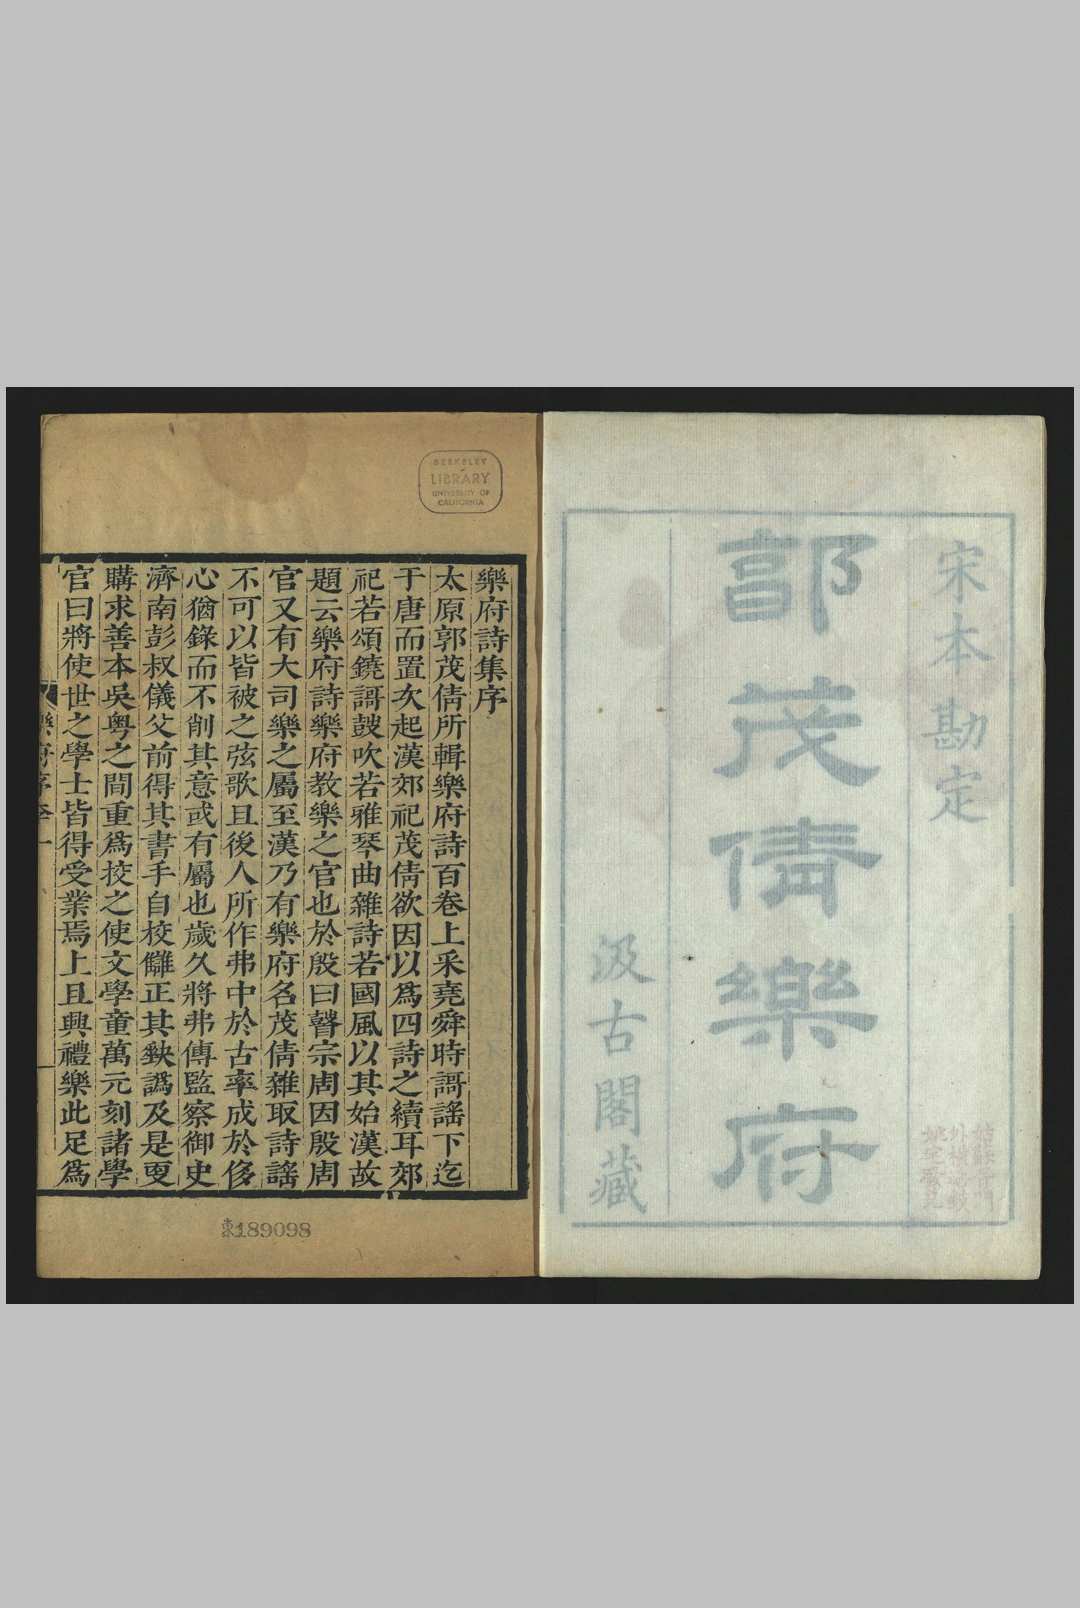 宋本勘定
郭茂倩樂府
汲古閣藏
BERKELEY
LIBRARY
UNIVERSITY OF
CALIFORNIA
樂府詩集序
太原郭茂倩所輯樂府詩百卷上采堯舜時謌謠下迄
于唐而置次起漢郊祀茂倩欲因以爲四詩之續耳郊
祀若頌鐃謌鼓吹若雅琴曲雜詩若國風以其始漢故
題云樂府詩樂府教樂之官也於殷曰瞽宗周因殷周
官又有大司樂之屬至漢乃有樂府名茂倩雜取詩謠
不可以皆被之弦歌且後人所作弗中於古率成於侈
心猶錄而不削其意或有屬也歲久將弗傳監察御史
濟南彭叔儀父前得其書手自校讎正其缺譌及是更
購求善本吳粵之間重爲挍之使文學童萬元刻諸學
官曰將使世之學士皆得受業焉上且興禮樂此足爲
樂府序 一
東189098